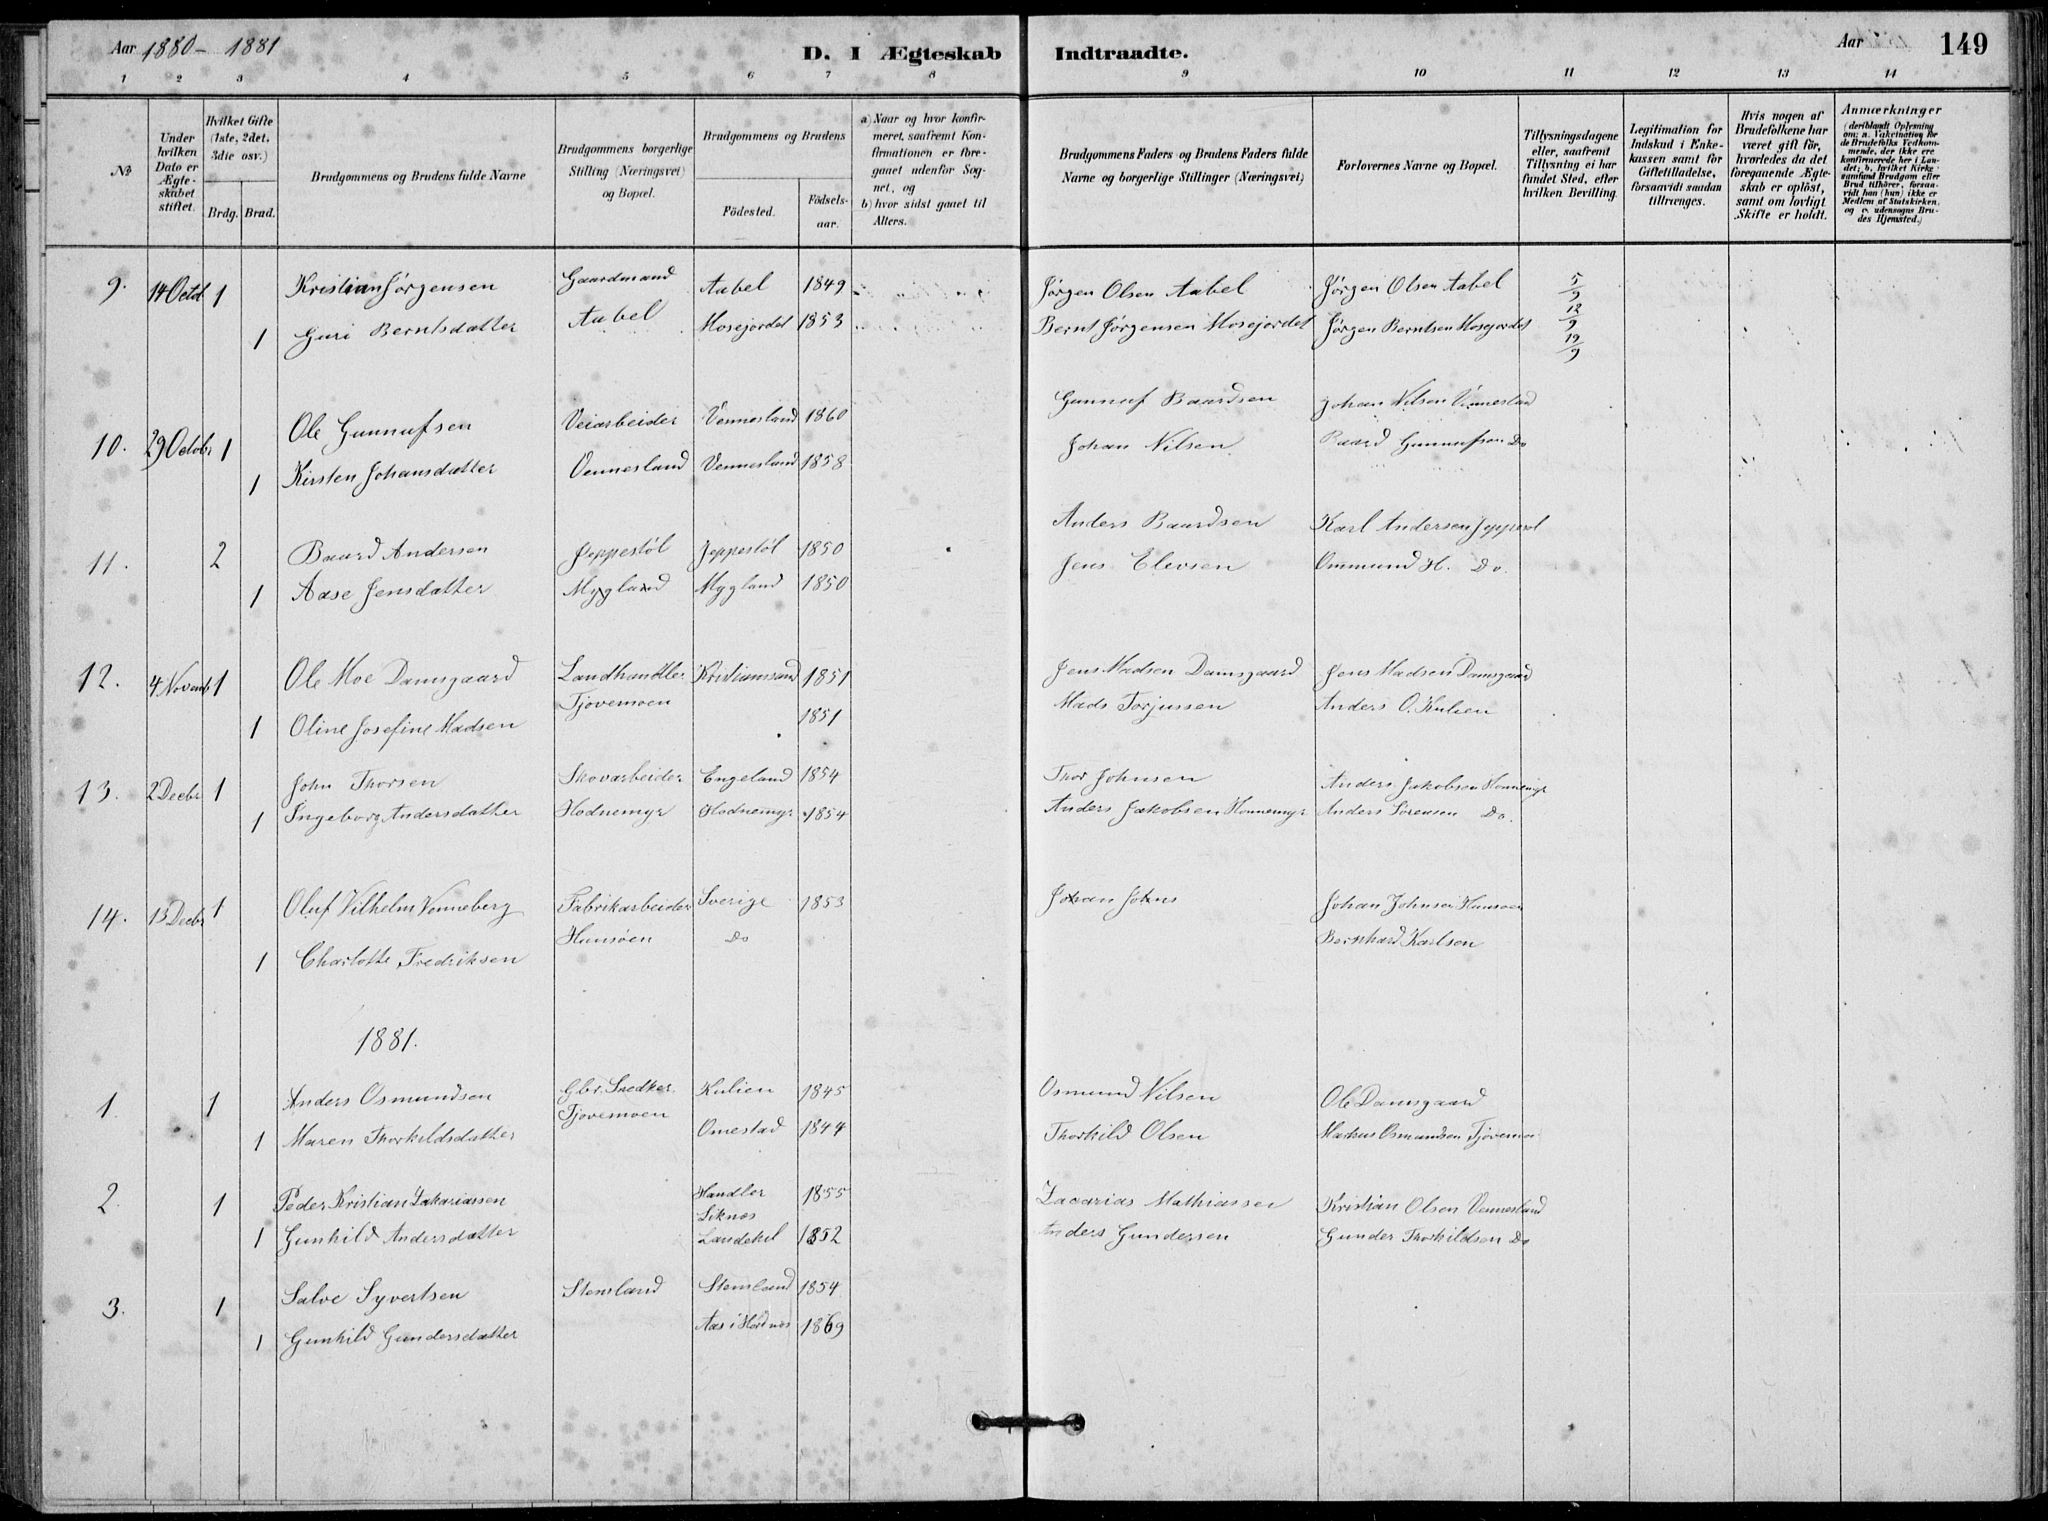 Aar 1880-1881
D. I Ægteskab Indtraadte.
Aar
149
1 2 3 4 5 6 7 8 9 10 11 12 13 14
No
Under hvilken Dato er Ægteskabet stiftet.
Hvilket Gifte (1ste, 2det, 3die osv.)
Brdg. Brud.
Brudgommens og Brudens fulde Navne
Brudgommens borgerlige Stilling (Næringsvei) og Bopæl.
Brudgommens og Brudens
Födested.
Födselsaar.
a) Naar og hvor konfirmeret, saafremt Konfirmationen er foregaaet udenfor Sognet, og
b) hvor sidst gaaet til Alters.
Brudgommens Faders og Brudens Faders fulde Navne og borgerlige Stillinger (Næringsvei)
Forlovernes Navne og Bopæl.
Tillysningsdagene eller, saafremt Tillysning ei har fundet Sted, efter hvilken Bevilling.
Legitimation for Indskud i Enkekassen samt for Giftetilladelse, forsaavidt saadan tiltrænges.
Hvis nogen af Brudefolkene har været gift för, hvorledes da det foregaaende Ægteskab er oplöst, samt om lovligt Skifte er holdt.
Anmærkninger (deriblandt Oplysning om: a. Vakcination for de Brudefolks Vedkommende, der ikke ere konfirmerede her i Landet; b. hvilket Kirkesamfund Brudgom eller Brud tilhörer, forsaavidt han (hun) ikke er Medlem af Statskirken, og c. udensogns Brudes Hjemsted.)
9. 14 Octb 1 Kristian Jørgensen Gaardmand Aabel 1849 Jørgen Olsen Aabel Jørgen Olsen Aabel 5/9
1 Guri Berntsdatter Aabel Mosejordet 1853 Bernt Jørgensen Mosejordet Jørgen Berntsen Mosejordet 12/9
19/9
10. 29 Octobr 1 Ole Gunnufsen Veiarbeider Vennesland 1860 Gunnuf Baardsen Johan Nilsen Vennesland
1 Kirsten Johansdatter Vennesland Vennesland 1858 Johan Nilsen Baard Gunnufsen Do
11. 2 Baard Andersen Jeppestøl Jeppestøl 1850 Anders Baardsen Karl Andersen
1 Aase Jensdatter Mygland Mygland 1850 Jens Elevsen Ommund H. Do.
12. 4 Novemb 1 Ole Moe Damsgaard Landhandler Kristiansand 1851 Jens Madsen Damsgaard Jens Madsen Damsgaard
1 Oline Josefine Madsen Tjovemoen 1851 Mads Torjussen Anders O. Kulien
13. 2 Decbr 1 John Thorsen Skovarbeider Engeland 1854 Thor Johnsen Anders Jakobsen Honnemyr
1 Ingeborg Andersdatter Hodnemyr Hodnemyr 1854 Anders Jakobsen Honnemyr Anders Sørensen Do.
14. 13 Decbr 1 Oluf Vilhelm Venneberg Fabrikarbeider Sverige 1853 Johan Johns Johan Johnsen Hunsøen
1 Charlotte Fredriksen Hunsøen Do Bernhard Karlsen
1881.
1. 1 Anders Osmundsen Gbr. Snedker Kulien 1845 Osmund Nilsen Ole Damsgaard
1 Maren Thorkildsdatter Tjovemoen Omestad 1844 Thorkild Olsen Markus Osmundsen Tjovemo
2. 1 Peder Kristian Zakariassen Handler Liknes 1855 Zacarias Mathiassen Kristian Olsen Vennesland
1 Gunhild Andersdatter Landekel 1852 Anders Gundersen Gunder Thorkildsen Do
3. 1 Salve Syvertsen Stensland Stensland 1854
1 Gunhild Gundersdatter Aas i 1869